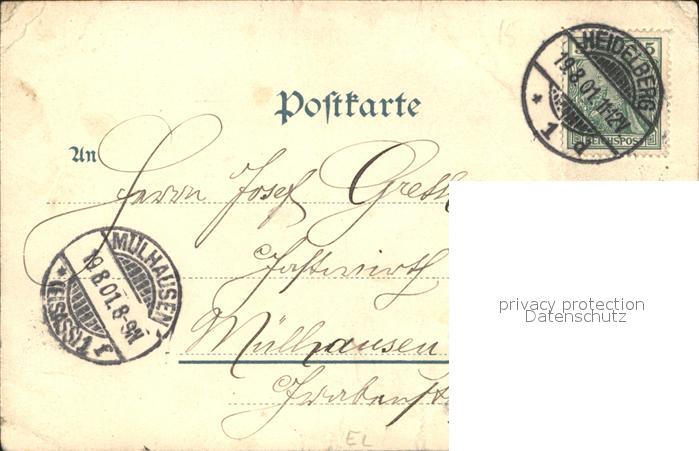 15
HEIDELBERG
19.8.01.11-12V.
* 1 d
5 5
REICHSPOST
Postkarte
An
Herrn Josef Greth
Gastwirth
MÜLHAUSEN
19.8.01.8-9N.
* (ELSASS) 1 f
Mülhausen
privacy protection
Datenschutz
EL